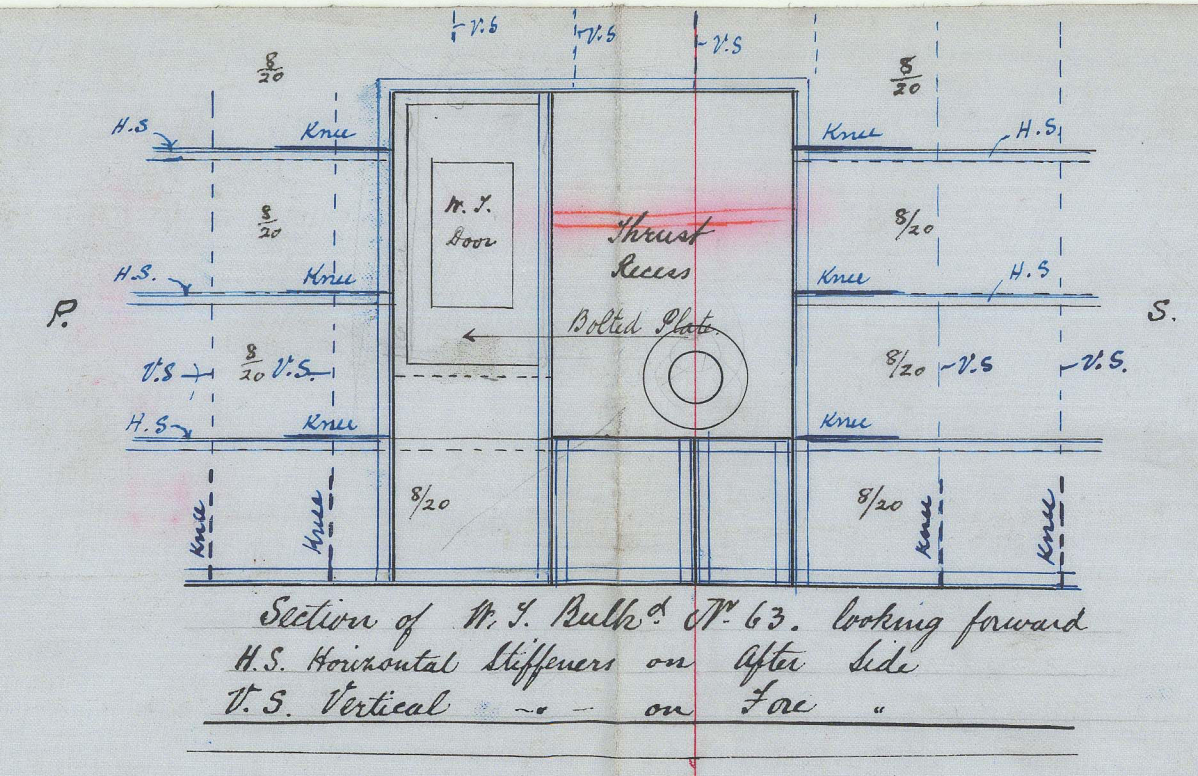 V.S V.S V.S
8/20 8/20
H.S Knee Knee H.S.
W.T. Door
8/20 Thrust Recess 8/20
H.S. Knee Knee H.S
P. S.
Bolted Plate.
V.S 8/20 V.S. 8/20 V.S V.S.
H.S Knee Knee
Knee Knee 8/20 8/20 Knee Knee
Section of W.T. Bulkd No. 63. looking forward
H.S. Horizontal Stiffeners on After Side
V.S. Vertical -"- on Fore "